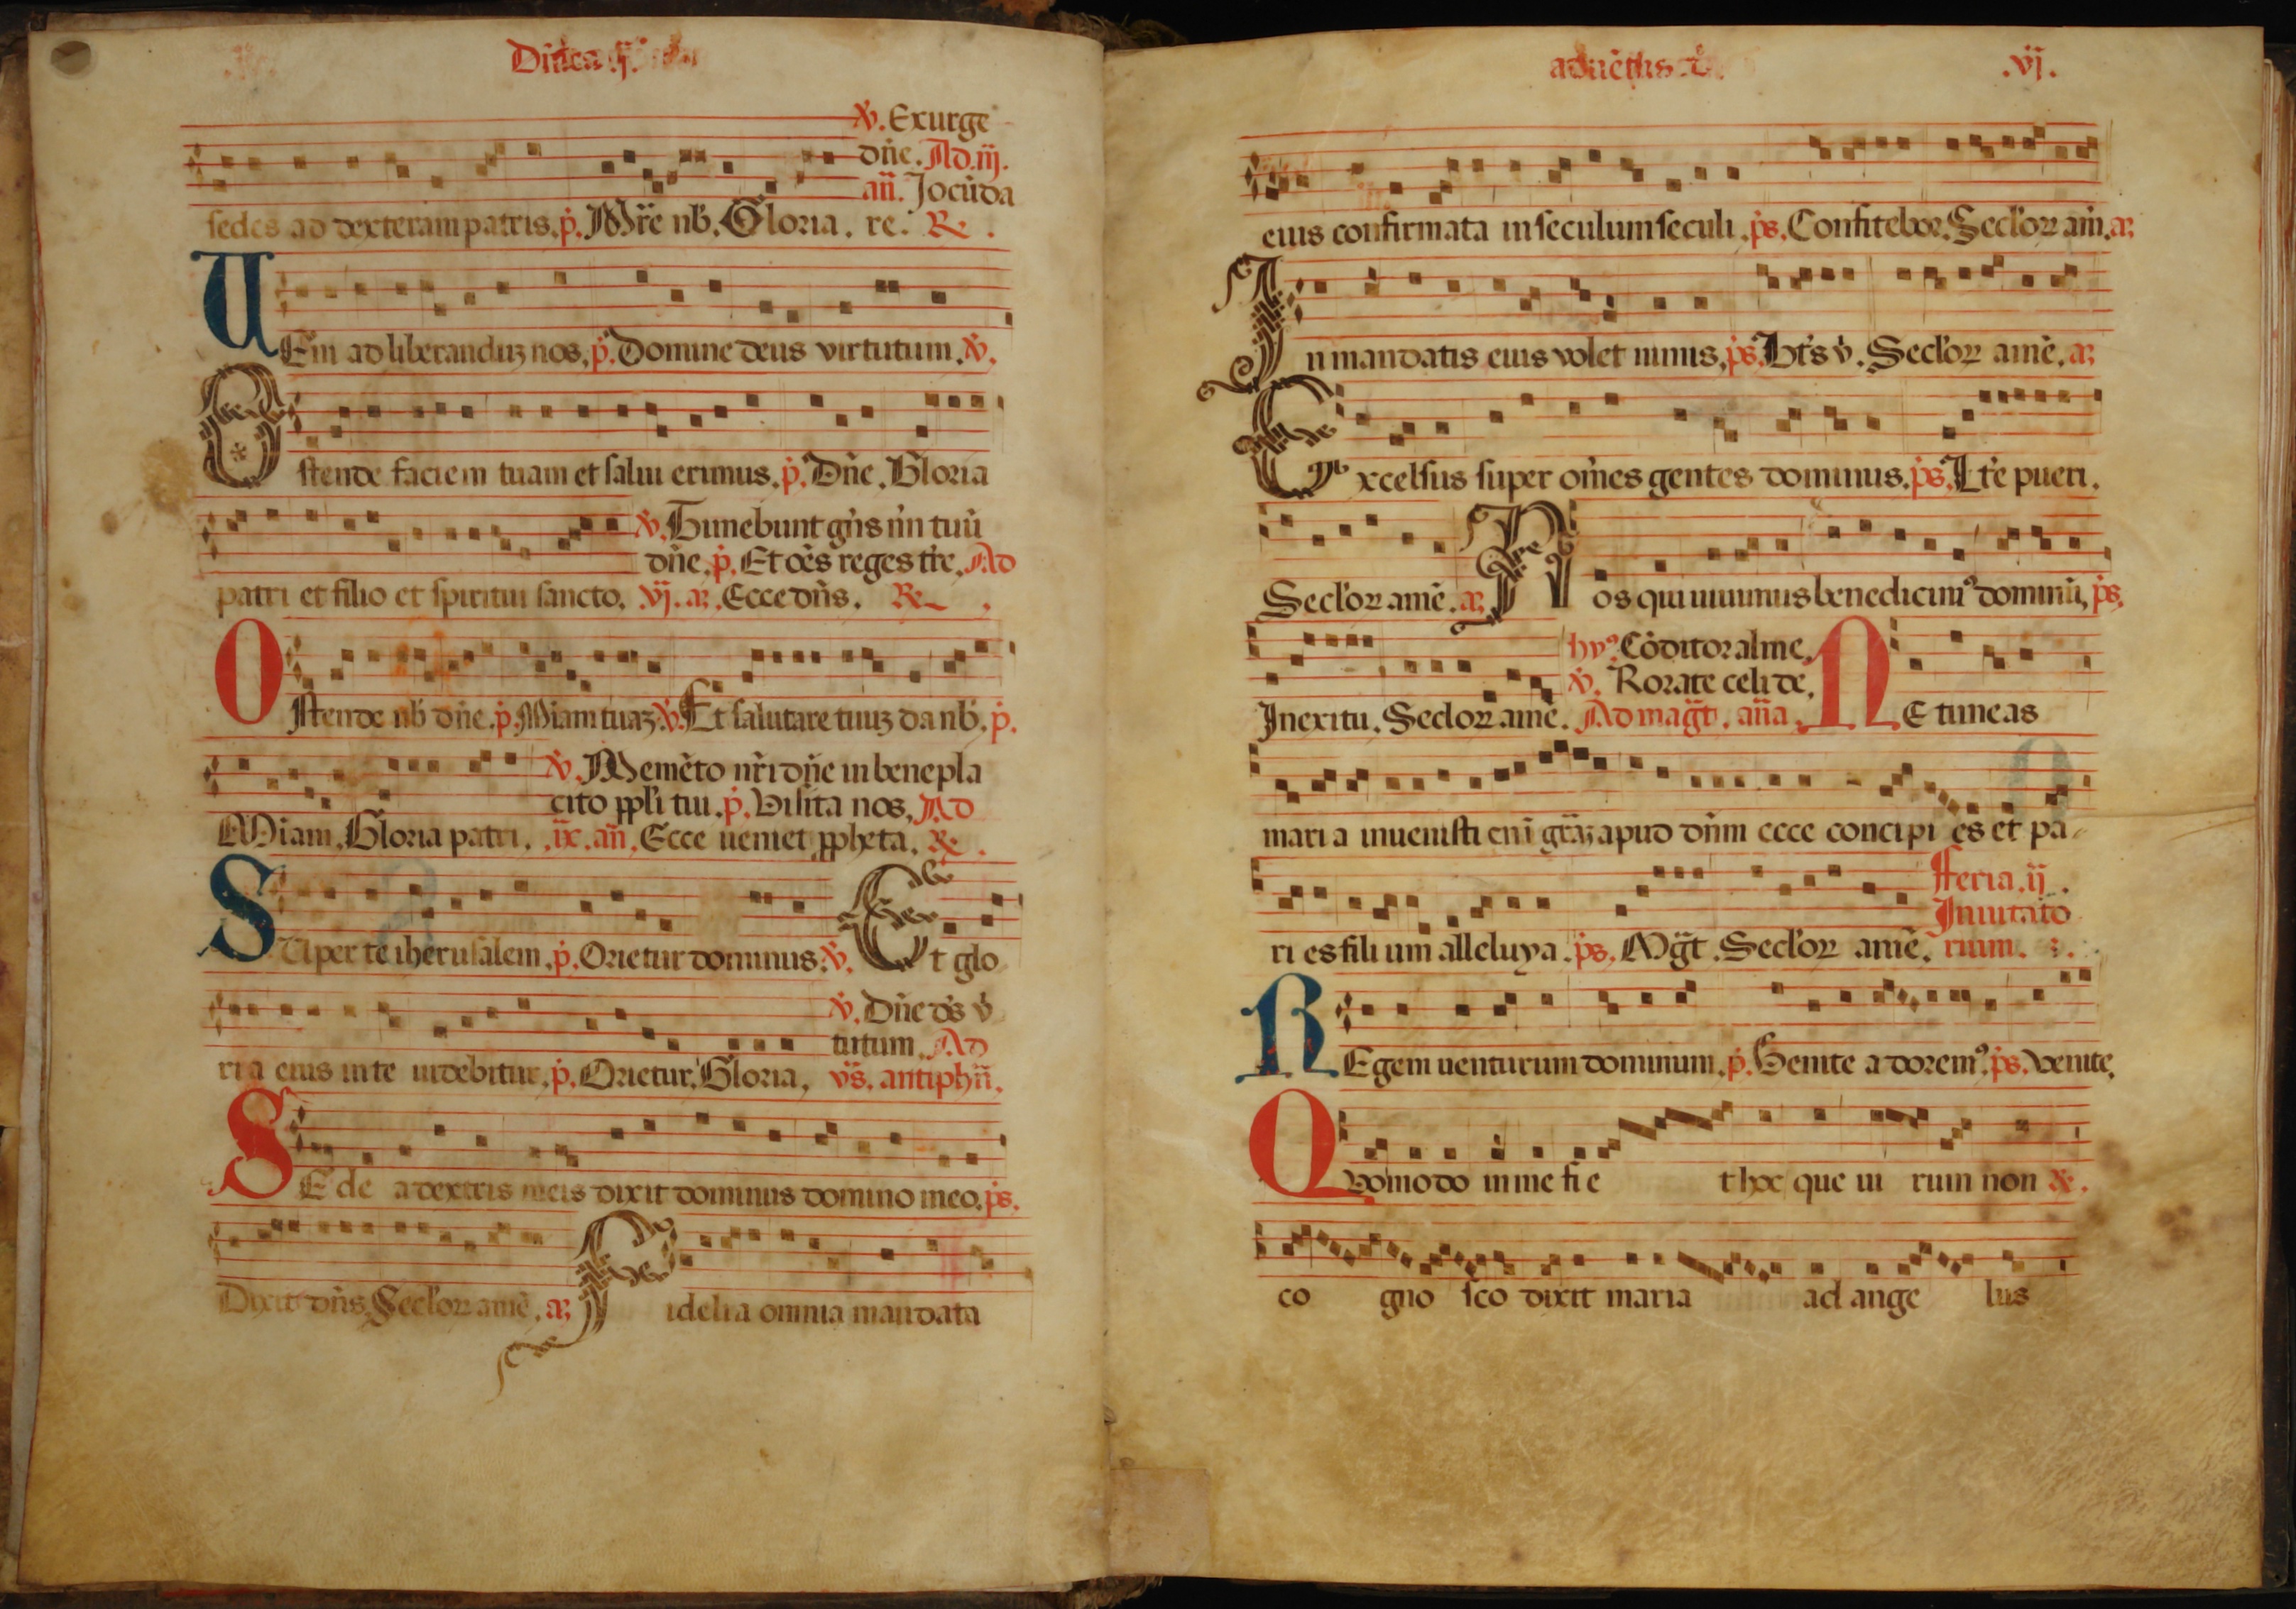 Dñica .ij.
℣. Exurge
dñe. Ad .iij.
añ. Jocũda
sedes ad dexteram patris. p. Mĩe nb. Gloria. re. Re.
VEni ad liberanduz nos. p. Domine deus virtutum. ℣.
Ostende faciem tuam et salui erimus. p. Dñe. Gloria
℣. Timebunt gñs nñ tuũ
dñe. p. Et oẽs reges tre. Ad
patri et filio et spiritui sancto. vj. a. Ecce dñs. Re.
OStende nb dñe. p. Miam tuaz. ℣. Et salutare tuuz da nb. p.
℣. Memẽto nr̃i dñe in benepla
cito ppli tui. p. Visita nos. Ad
Miam. Gloria patri. ix. añ. Ecce ueniet ppheta. Re.
SUper te iherusalem. p. Orietur dominus. ℣. Et glo
℣. Dñe ds v
tutum. Ad
ria eius in te uidebitur. p. Orietur. Gloria. vs. antiphñ.
SEde a dextris meis dixit dominus domino meo. ps.
Dixit dñs. Seclor amẽ. a. Fidelia omnia mandata
aduẽtus
.vj.
eius confirmata in seculum seculi. ps. Confitebor. Seclor am. a.
In mandatis eius volet nimis. ps. Bts v. Seclor amẽ. a.
Excelsus super om̃es gentes dominus. ps. Lte pueri.
Seclor amẽ. a. Nos qui uiuimus benedicim⁹ dominũ. ps.
hy⁹. Cõditor alme.
℣. Rorate celi de.
In exitu. Seclor amẽ. Ad magt. aña. NE timeas
maria inuenisti eni grãz apud dñm ecce concipi es et pa
Feria .ij.
Inuitato
ri es filium alleluya. ps. Mgt. Seclor amẽ. rium.
REgem uenturum dominum. p. Venite adorem⁹. ps. Venite.
QVomodo in me fi e t hoc que ui rum non Re.
co gno sco dixit maria ad ange lus